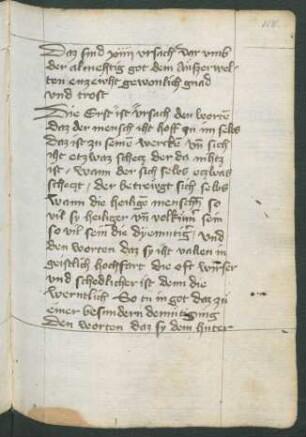 Daz sind xiiii vrsach dar vmb
der almehtig got dem Auszerwel-
ten enzeiht gewonlich gnad
vnd trost
Die Erst ist vrsach den worte
daz der mensch iht hoff in im selbs
Daz ist zu seine wercke vn sich
iht etzwaz schetz der da nihtz
ist / wann der sich selbs etzwaz
schetzt / der betreugt sich selbs
wann die heilige mensche so
vil sy heiliger vn volkume sein
so vil sein die dyemutig / vnd
den worten daz sy iht vallen in
geistlich hochfart die oft
vnd schedlicher ist denn die
werntlich So tu in got daz zu
einer besundern demutigung
Den worten daz sy dem hinter